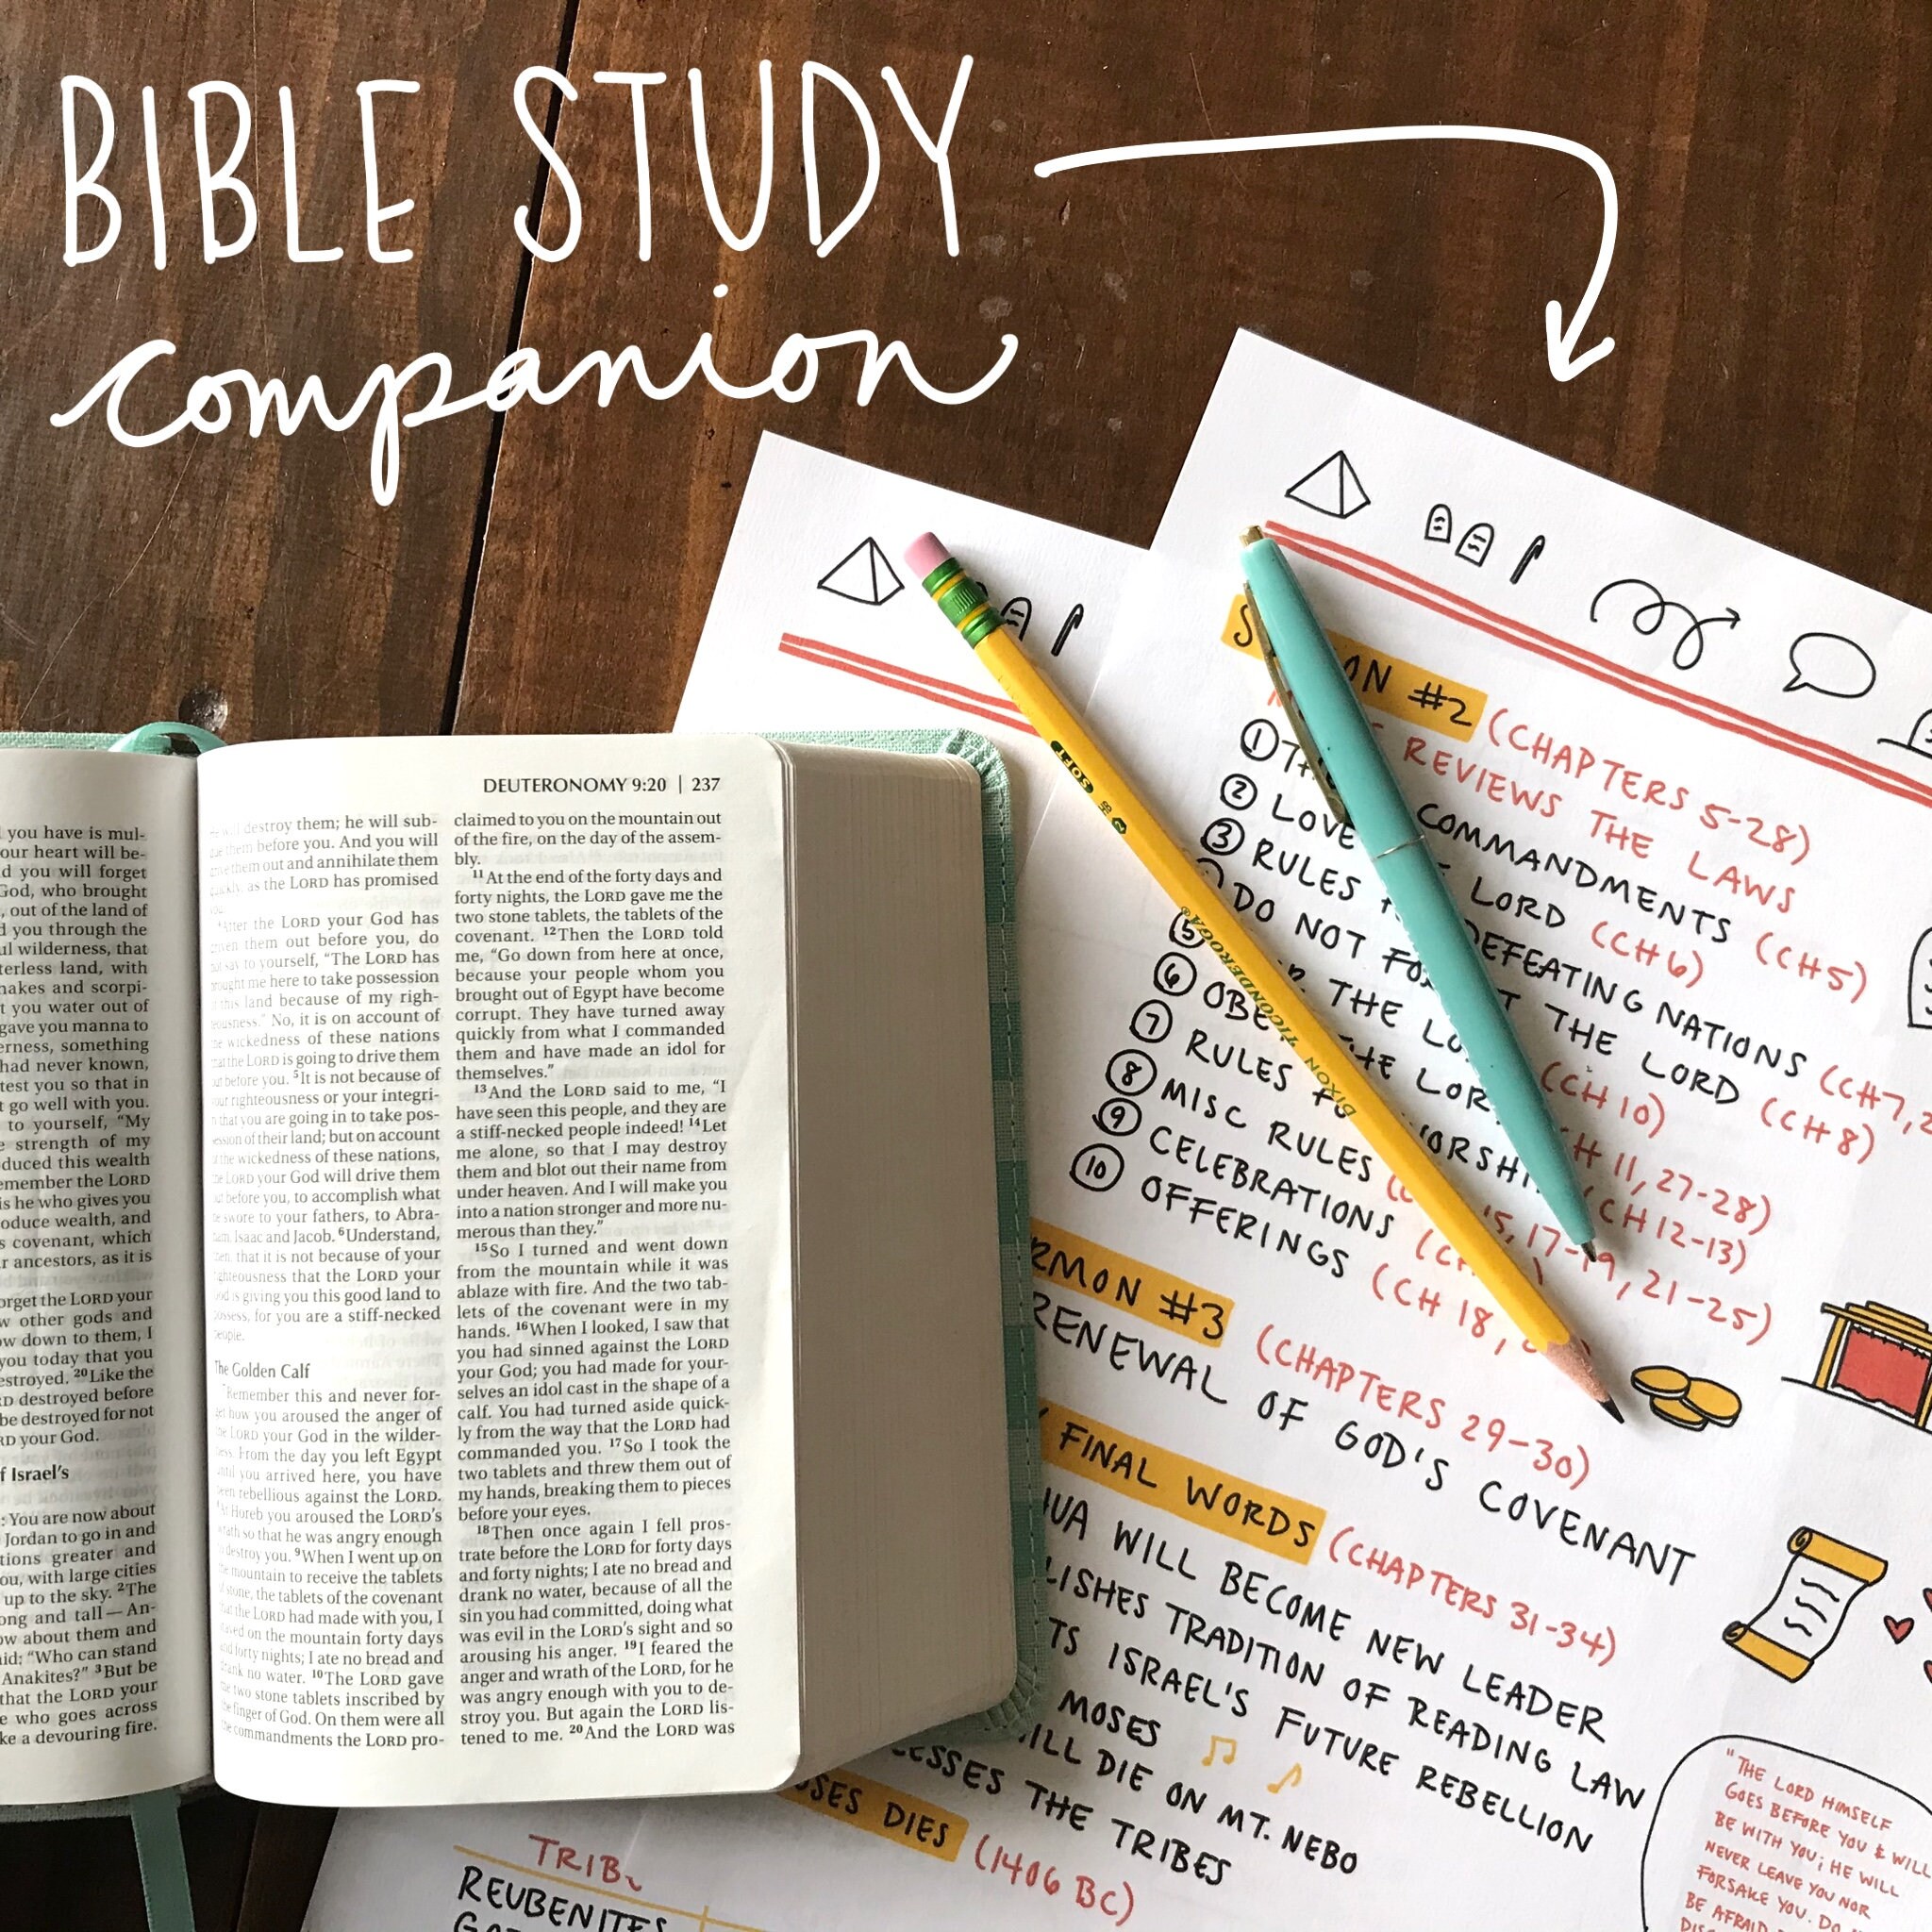 BIBLE STUDY
companion
DEUTERONOMY 9:20 | 237
you have is mul-
our heart will be-
d you will forget
God, who brought
, out of the land of
d you through the
ul wilderness, that
terless land, with
nakes and scorpi-
t you water out of
gave you manna to
erness, something
had never known,
test you so that in
t go well with you.
to yourself, “My
e strength of my
duced this wealth
emember the LORD
is he who gives you
oduce wealth, and
s covenant, which
r ancestors, as it is
orget the LORD your
w other gods and
ow down to them, I
you today that you
estroyed. 20Like the
RD destroyed before
be destroyed for not
RD your God.
f Israel’s
: You are now about
Jordan to go in and
tions greater and
ou, with large cities
up to the sky. 2The
ong and tall — An-
ow about them and
aid: “Who can stand
Anakites?” 3But be
that the LORD your
e who goes across
ke a devouring fire.
destroy them; he will sub-
them before you. And you will
them out and annihilate them
as the LORD has promised
After the LORD your God has
them out before you, do
say to yourself, “The LORD has
brought me here to take possession
this land because of my righ-
eousness.” No, it is on account of
the wickedness of these nations
that the LORD is going to drive them
out before you. 5It is not because of
your righteousness or your integri-
that you are going in to take pos-
session of their land; but on account
of the wickedness of these nations,
the LORD your God will drive them
out before you, to accomplish what
he swore to your fathers, to Abra-
ham, Isaac and Jacob. 6Understand,
then, that it is not because of your
righteousness that the LORD your
God is giving you this good land to
possess, for you are a stiff-necked
people.
The Golden Calf
Remember this and never for-
get how you aroused the anger of
the LORD your God in the wilder-
ness. From the day you left Egypt
until you arrived here, you have
been rebellious against the LORD.
At Horeb you aroused the LORD’s
wrath so that he was angry enough
to destroy you. 9When I went up on
the mountain to receive the tablets
of stone, the tablets of the covenant
that the LORD had made with you, I
stayed on the mountain forty days
and forty nights; I ate no bread and
drank no water. 10The LORD gave
me two stone tablets inscribed by
the finger of God. On them were all
the commandments the LORD pro-
claimed to you on the mountain out
of the fire, on the day of the assem-
bly.
11At the end of the forty days and
forty nights, the LORD gave me the
two stone tablets, the tablets of the
covenant. 12Then the LORD told
me, “Go down from here at once,
because your people whom you
brought out of Egypt have become
corrupt. They have turned away
quickly from what I commanded
them and have made an idol for
themselves.”
13And the LORD said to me, “I
have seen this people, and they are
a stiff-necked people indeed! 14Let
me alone, so that I may destroy
them and blot out their name from
under heaven. And I will make you
into a nation stronger and more nu-
merous than they.”
15So I turned and went down
from the mountain while it was
ablaze with fire. And the two tab-
lets of the covenant were in my
hands. 16When I looked, I saw that
you had sinned against the LORD
your God; you had made for your-
selves an idol cast in the shape of a
calf. You had turned aside quick-
ly from the way that the LORD had
commanded you. 17So I took the
two tablets and threw them out of
my hands, breaking them to pieces
before your eyes.
18Then once again I fell pros-
trate before the LORD for forty days
and forty nights; I ate no bread and
drank no water, because of all the
sin you had committed, doing what
was evil in the LORD’s sight and so
arousing his anger. 19I feared the
anger and wrath of the LORD, for he
was angry enough with you to de-
stroy you. But again the LORD lis-
tened to me. 20And the LORD was
ON #2 (CHAPTERS 5-28)
REVIEWS THE LAWS
1 COMMANDMENTS (CH 5)
2 LOVE LORD (CH 6)
3 RULES DEFEATING NATIONS (CH 7,
DO NOT THE LORD (CH 8)
5 THE (CH 10)
6 THE LOR CH 11, 27-28)
7 RULES WORSHI (CH 12-13)
8 MISC RULES 15, 17-19, 21-25)
9 CELEBRATIONS
10 OFFERINGS (CH 18,
RMON #3 (CHAPTERS 29-30)
RENEWAL OF GOD'S COVENANT
FINAL WORDS (CHAPTERS 31-34)
UA WILL BECOME NEW LEADER
LISHES TRADITION OF READING LAW
TS ISRAEL'S FUTURE REBELLION
MOSES
ILL DIE ON MT. NEBO
ESSES THE TRIBES
OSES DIES (1406 BC)
TRIB
REUBENITES
"THE LORD HIMSELF
GOES BEFORE YOU & WILL
BE WITH YOU; HE WILL
NEVER LEAVE YOU NOR
FORSAKE YOU. DO
BE AFRAID
DIXON TICONDEROGA®
2 SOFT